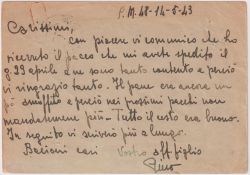 P.M. 48-14-5-43
Carissimi,
con piacere vi comunico che ho
ricevuto il pacco che mi avete spedito il
g 29 aprile e ne sono tanto contento e perciò
vi ringrazio tanto. Il pane era ancora un
pò e perciò nei prossimi pacchi non
mandatemene più - Tutto il resto era buono.
In seguito vi scriverò più a lungo.
Bacioni cari Vostro aff figlio